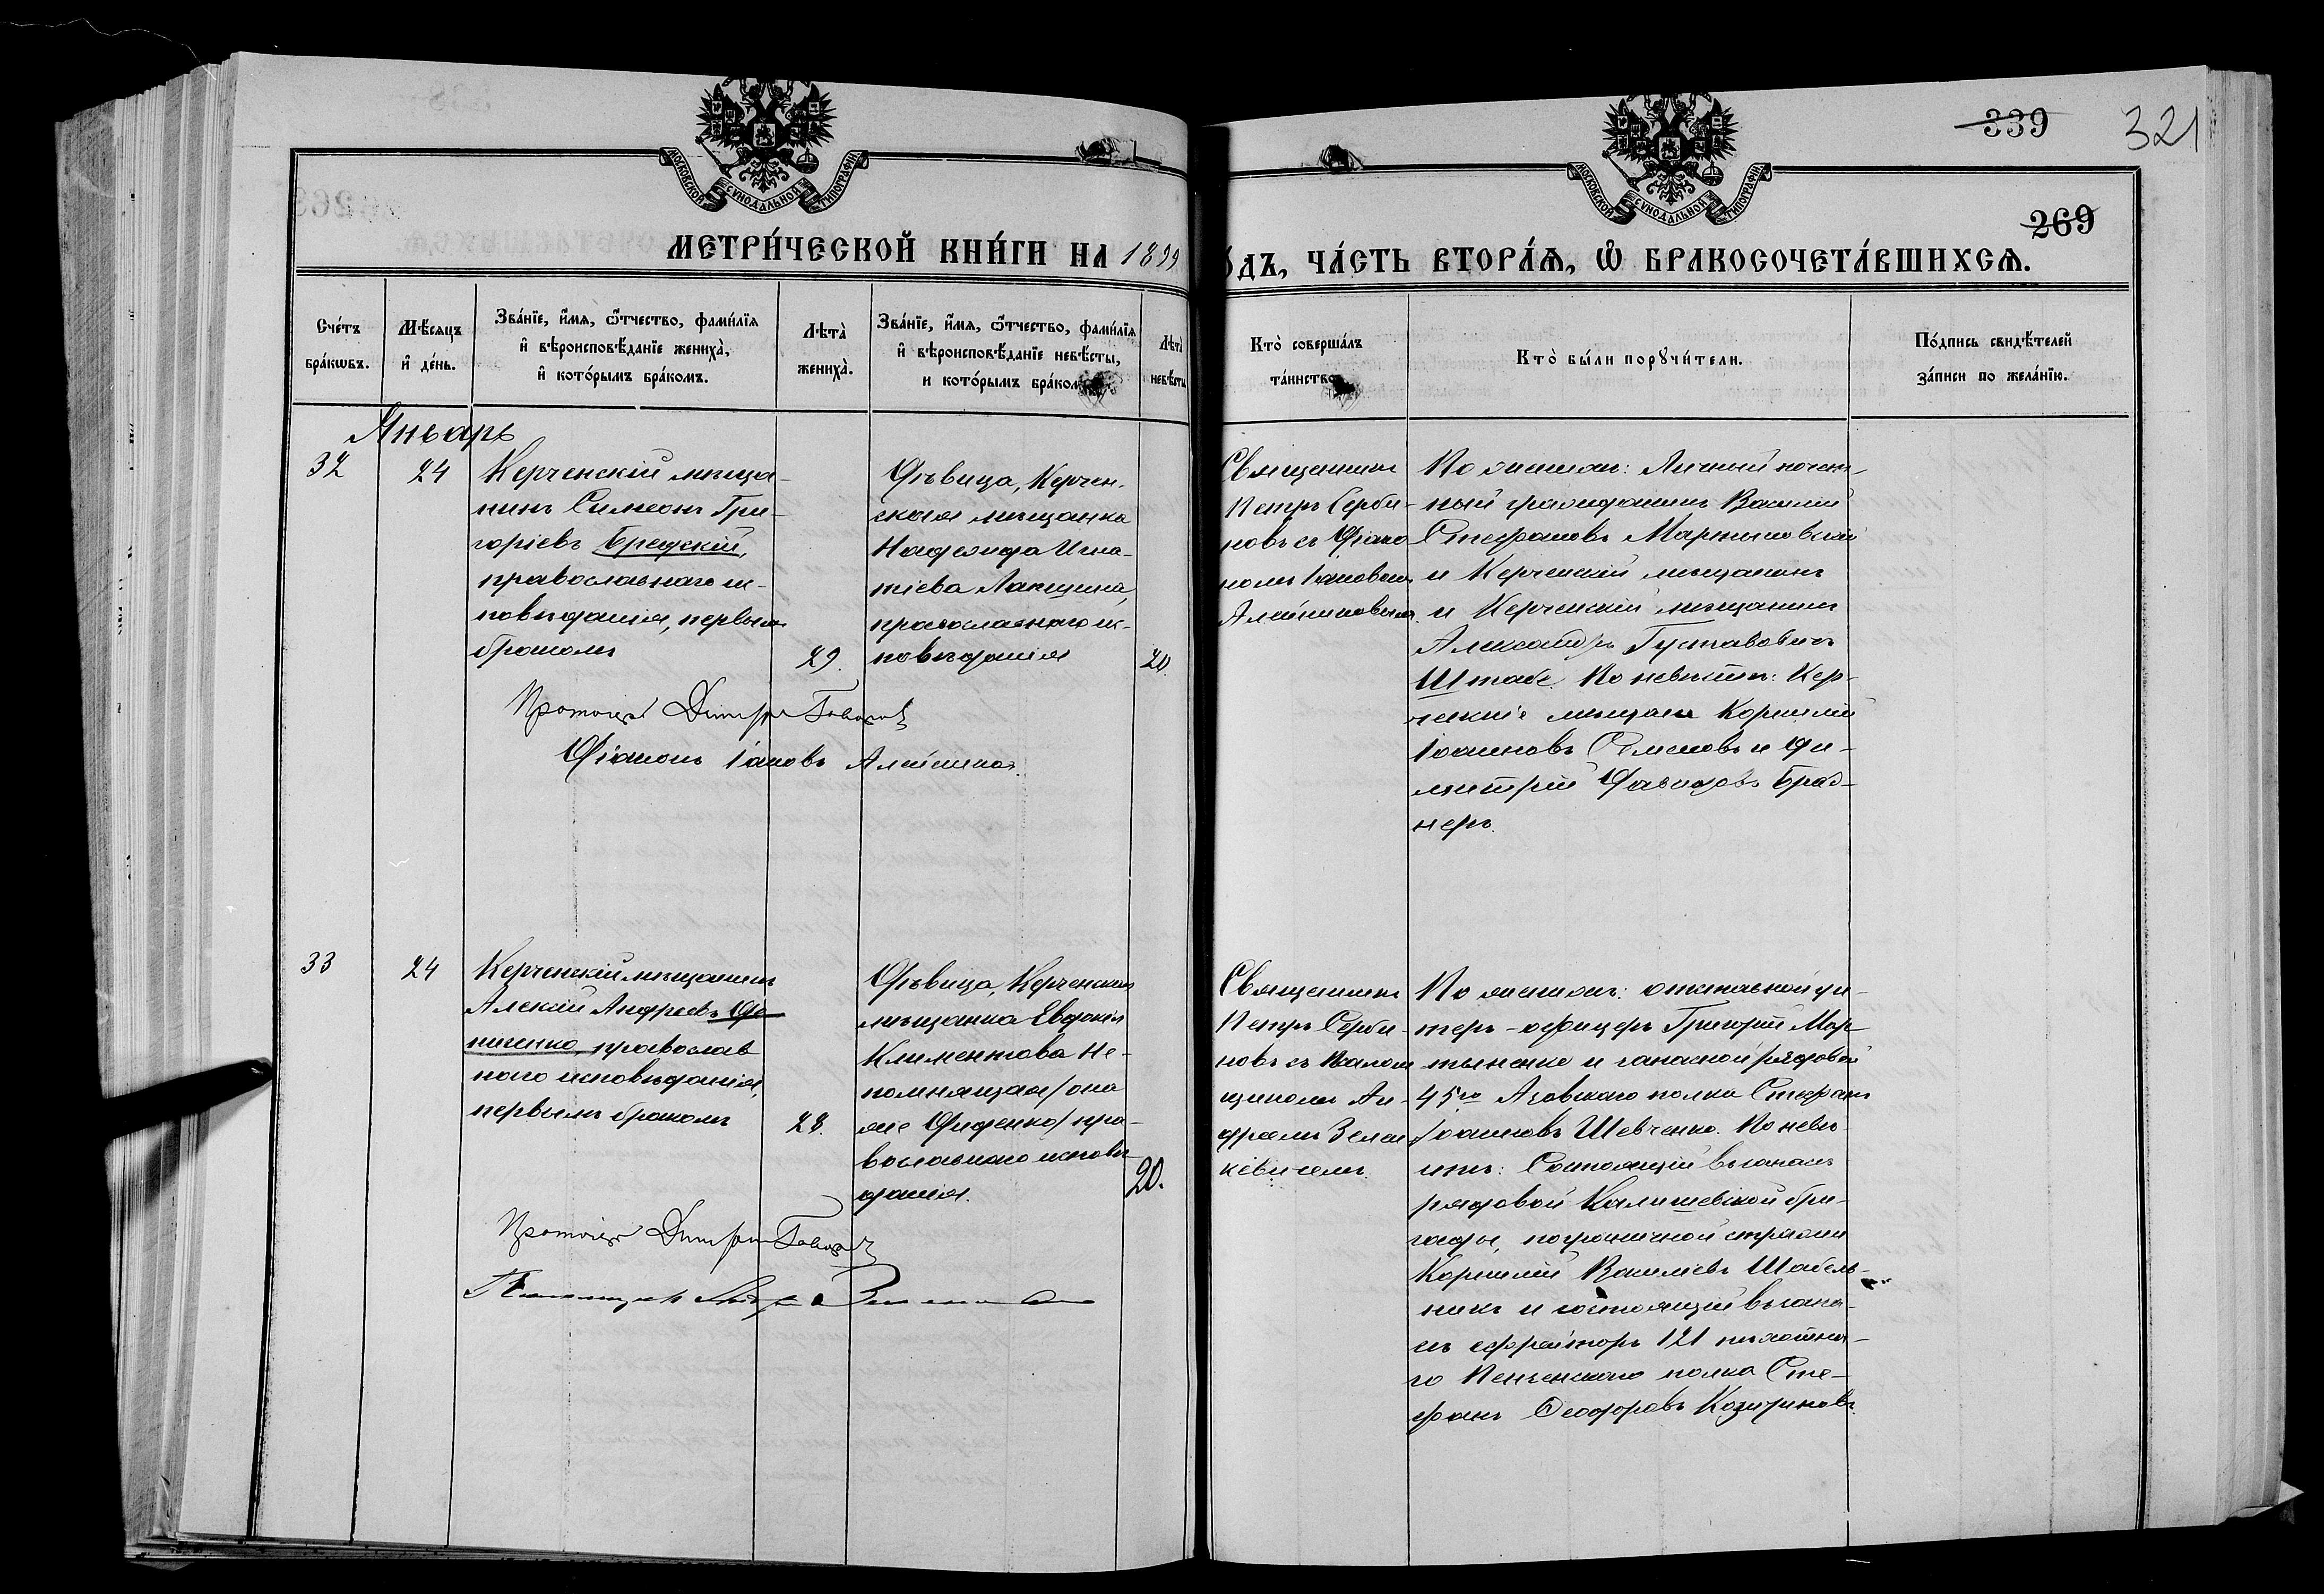 339
321
269
МОСКОВСКОЙ СѴНОДАЛЬНОЙ ТИПОГРАФІИ
МОСКОВСКОЙ СѴНОДАЛЬНОЙ ТИПОГРАФІИ
МЕТРИ́ЧЕСКОЙ КНИ́ГИ НА 1899
ОДЪ, ЧА́СТЬ ВТОРА́Ѧ, Ѡ БРАКОСОЧЕТА́ВШИХСѦ.
Сче́тъ
бра́кѡвъ.
Мѣ́сяцъ
и҆ де́нь.
Зва́нїе, и҆́мя, ѻ҆́тчество, фами́лїя
и҆ вѣроисповѣ́данїе жениха̀,
и҆ кото́рымъ бра́комъ.
Лѣта̀
жениха̀.
Зва́нїе, и҆́мя, ѻ҆́тчество, фами́лїя
и҆ вѣроисповѣ́данїе невѣ́сты,
и кото́рымъ бра́ком
Лѣта̀
невѣ́сты
Кто̀ соверша́лъ
та́инство
Кто̀ бы́ли порꙋчи́тели.
По́дпись свидѣ́телей
за́писи по жела́нїю.
Январь
32
24
Керченскій мѣща-
нинъ Симеонъ Гри-
горіевъ Бредскій,
православнаго ис-
повѣданія, первымъ
бракомъ
29.
Дѣвица, Керчен-
ская мѣщанка
Надежда Игна-
тіева Лапшина,
православнаго ис-
повѣданія
20.
Протоіерей Димитрій
Діаконъ Іаковъ Алейников
Священникъ
Петръ Серби-
новъ съ Діако
номъ Іаковомъ
Алейниковымъ.
По женихѣ: Личный почет-
ный гражданинъ Василій
Стефановъ Мартиновскій
и Керченскій мѣщанинъ
и Керченскій мѣщанинъ
Александръ Густавовичъ
Штабе. По невѣстѣ: Кер-
ченскіе мѣщане Корнилій
Іоанновъ Семеновъ и Ди-
митрій Давидовъ Брад-
неръ.
33
24
Керченскій мѣщанинъ
Алексій Андреевъ
православ
наго исповѣданія,
первымъ бракомъ
28.
Дѣвица, Керченская
мѣщанка Евдокія
Климентова Не-
помнящая / она
же Диденко / пра-
вославнаго исповѣ
данія.
20.
Протоіерей Димитрій
Псаломщикъ Андрей
Священникъ
Петръ Серби-
новъ съ Псалом
щикомъ Ан-
дреемъ Зелен
кевичемъ.
По женихѣ: отставной ун-
теръ-офицеръ Григорій Мар
тыненко и запасной рядовой
45го Азовскаго полка Стефанъ
Іоанновъ Шевченко. По невѣ-
стѣ: Состоящій въ запасѣ
рядовой Калишевской бри-
гады, пограничной стражи
Корнилій Василіевъ Шабель-
никъ и состоящій въ запа-
сѣ ефрейторъ 121 пѣхотна-
го Пензенскаго полка Сте-
фанъ Ѳеодоровъ